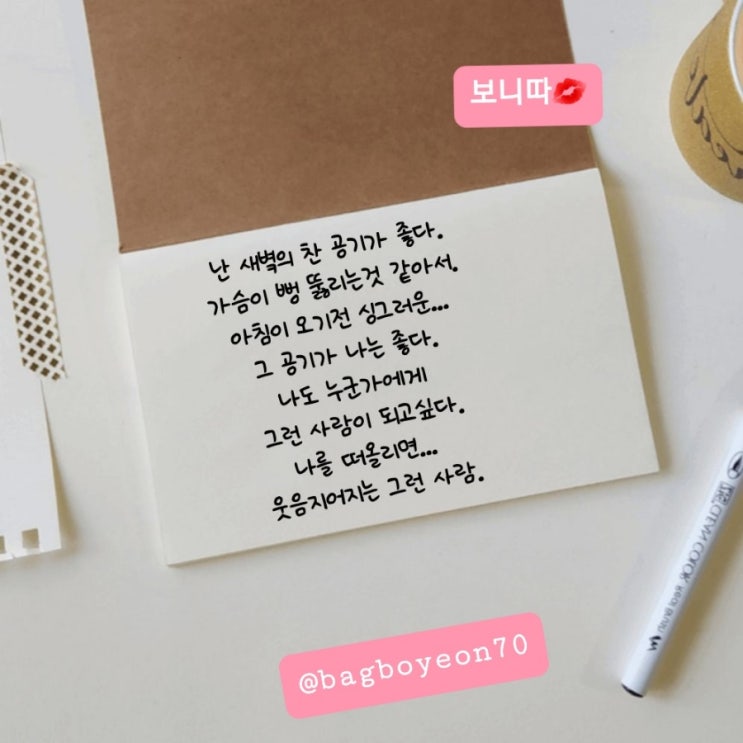 보니따💋
난 새벽의 찬 공기가 좋다.
가슴이 뻥 뚫리는것 같아서.
아침이 오기전 싱그러운...
그 공기가 나는 좋다.
나도 누군가에게
그런 사람이 되고싶다.
나를 떠올리면...
웃음지어지는 그런 사람.
CLEAN COLOR
@bagboyeon70